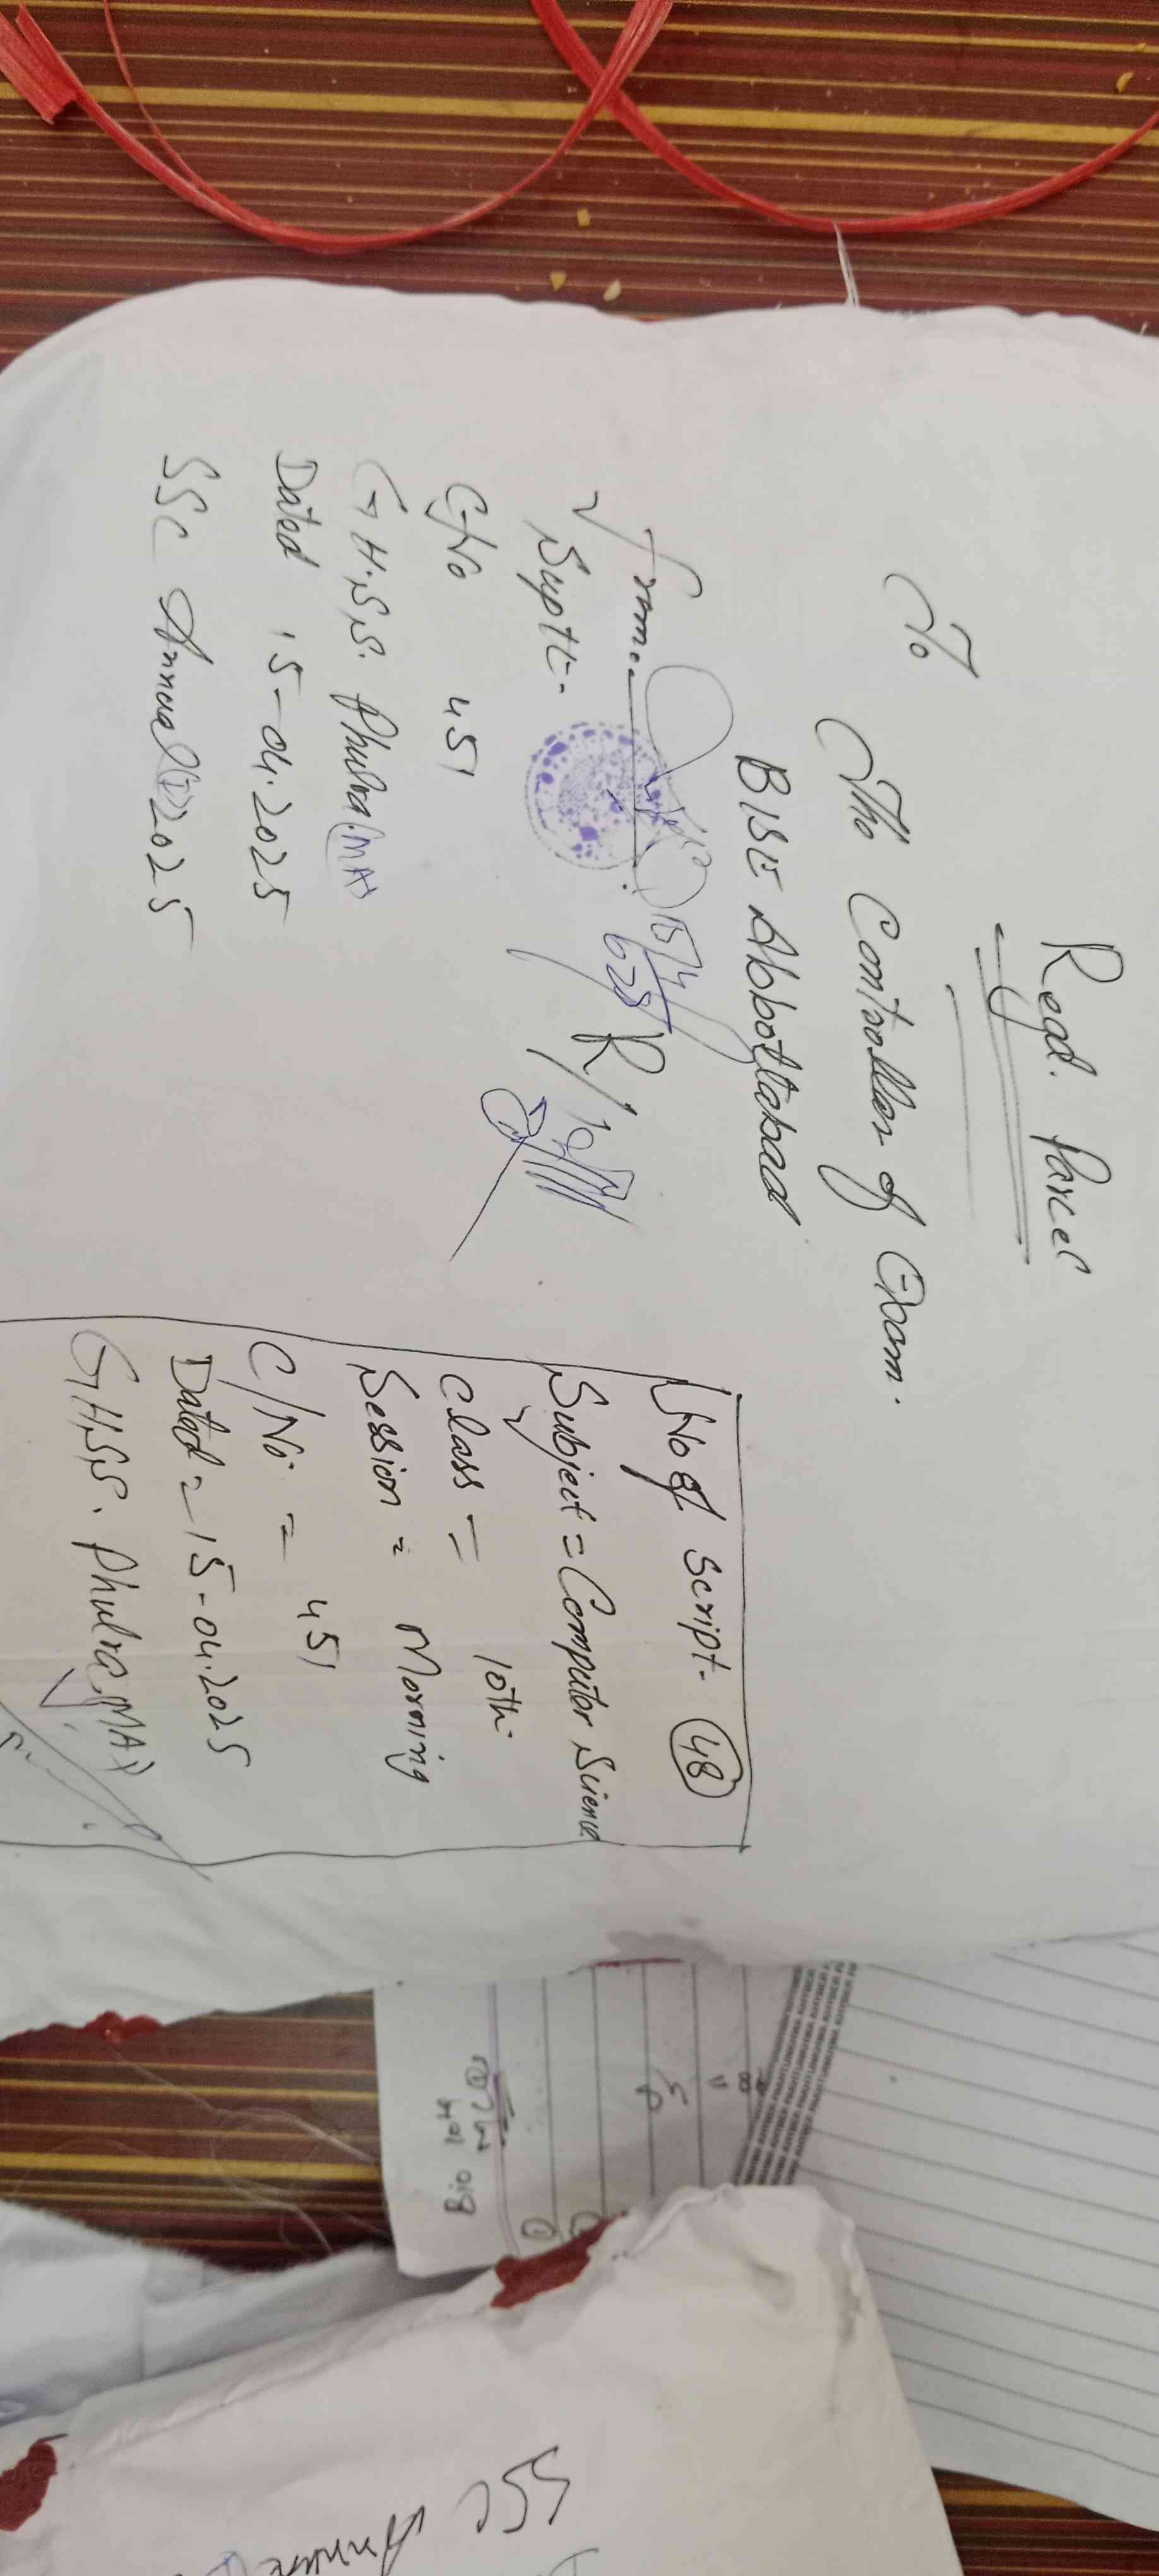 Regd. Parcel
To
The Controller of Exam.
BISE Abbottabad
From.
Suptt.
C/No 451
G.H.S.S. Phulra (MA)
Dated 15-04.2025
SSC Annual (I) 2025
15/4/
R/
No of Script. 48
Subject = Computer Science
Class = 10th
Session = Morning
C/No = 451
Dated = 15-04.2025
G.H.S.S. Phulra (MA)
Bio 10th
SSC